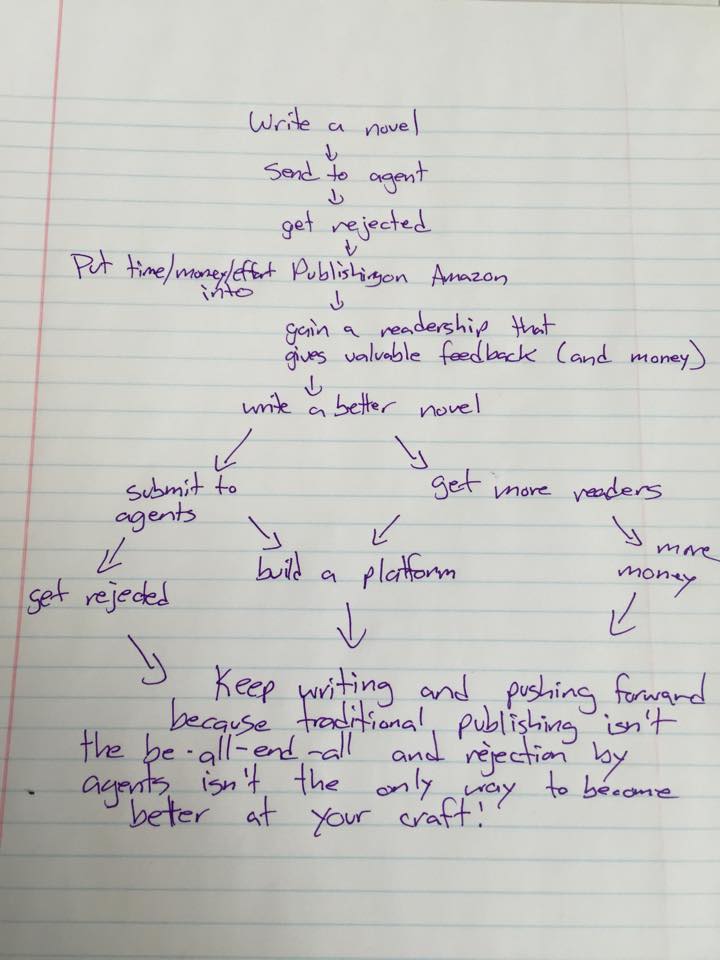 Write a novel
↓
Send to agent
↓
get rejected
↓
Put time/money/effort Publishing on Amazon
into
↓
gain a readership that
gives valuable feedback (and money)
↓
write a better novel
submit to
agents
get more readers
build a platform
more
money
get rejected
Keep writing and pushing forward
because traditional publishing isn't
the be-all-end-all and rejection by
agents isn't the only way to become
better at your craft!